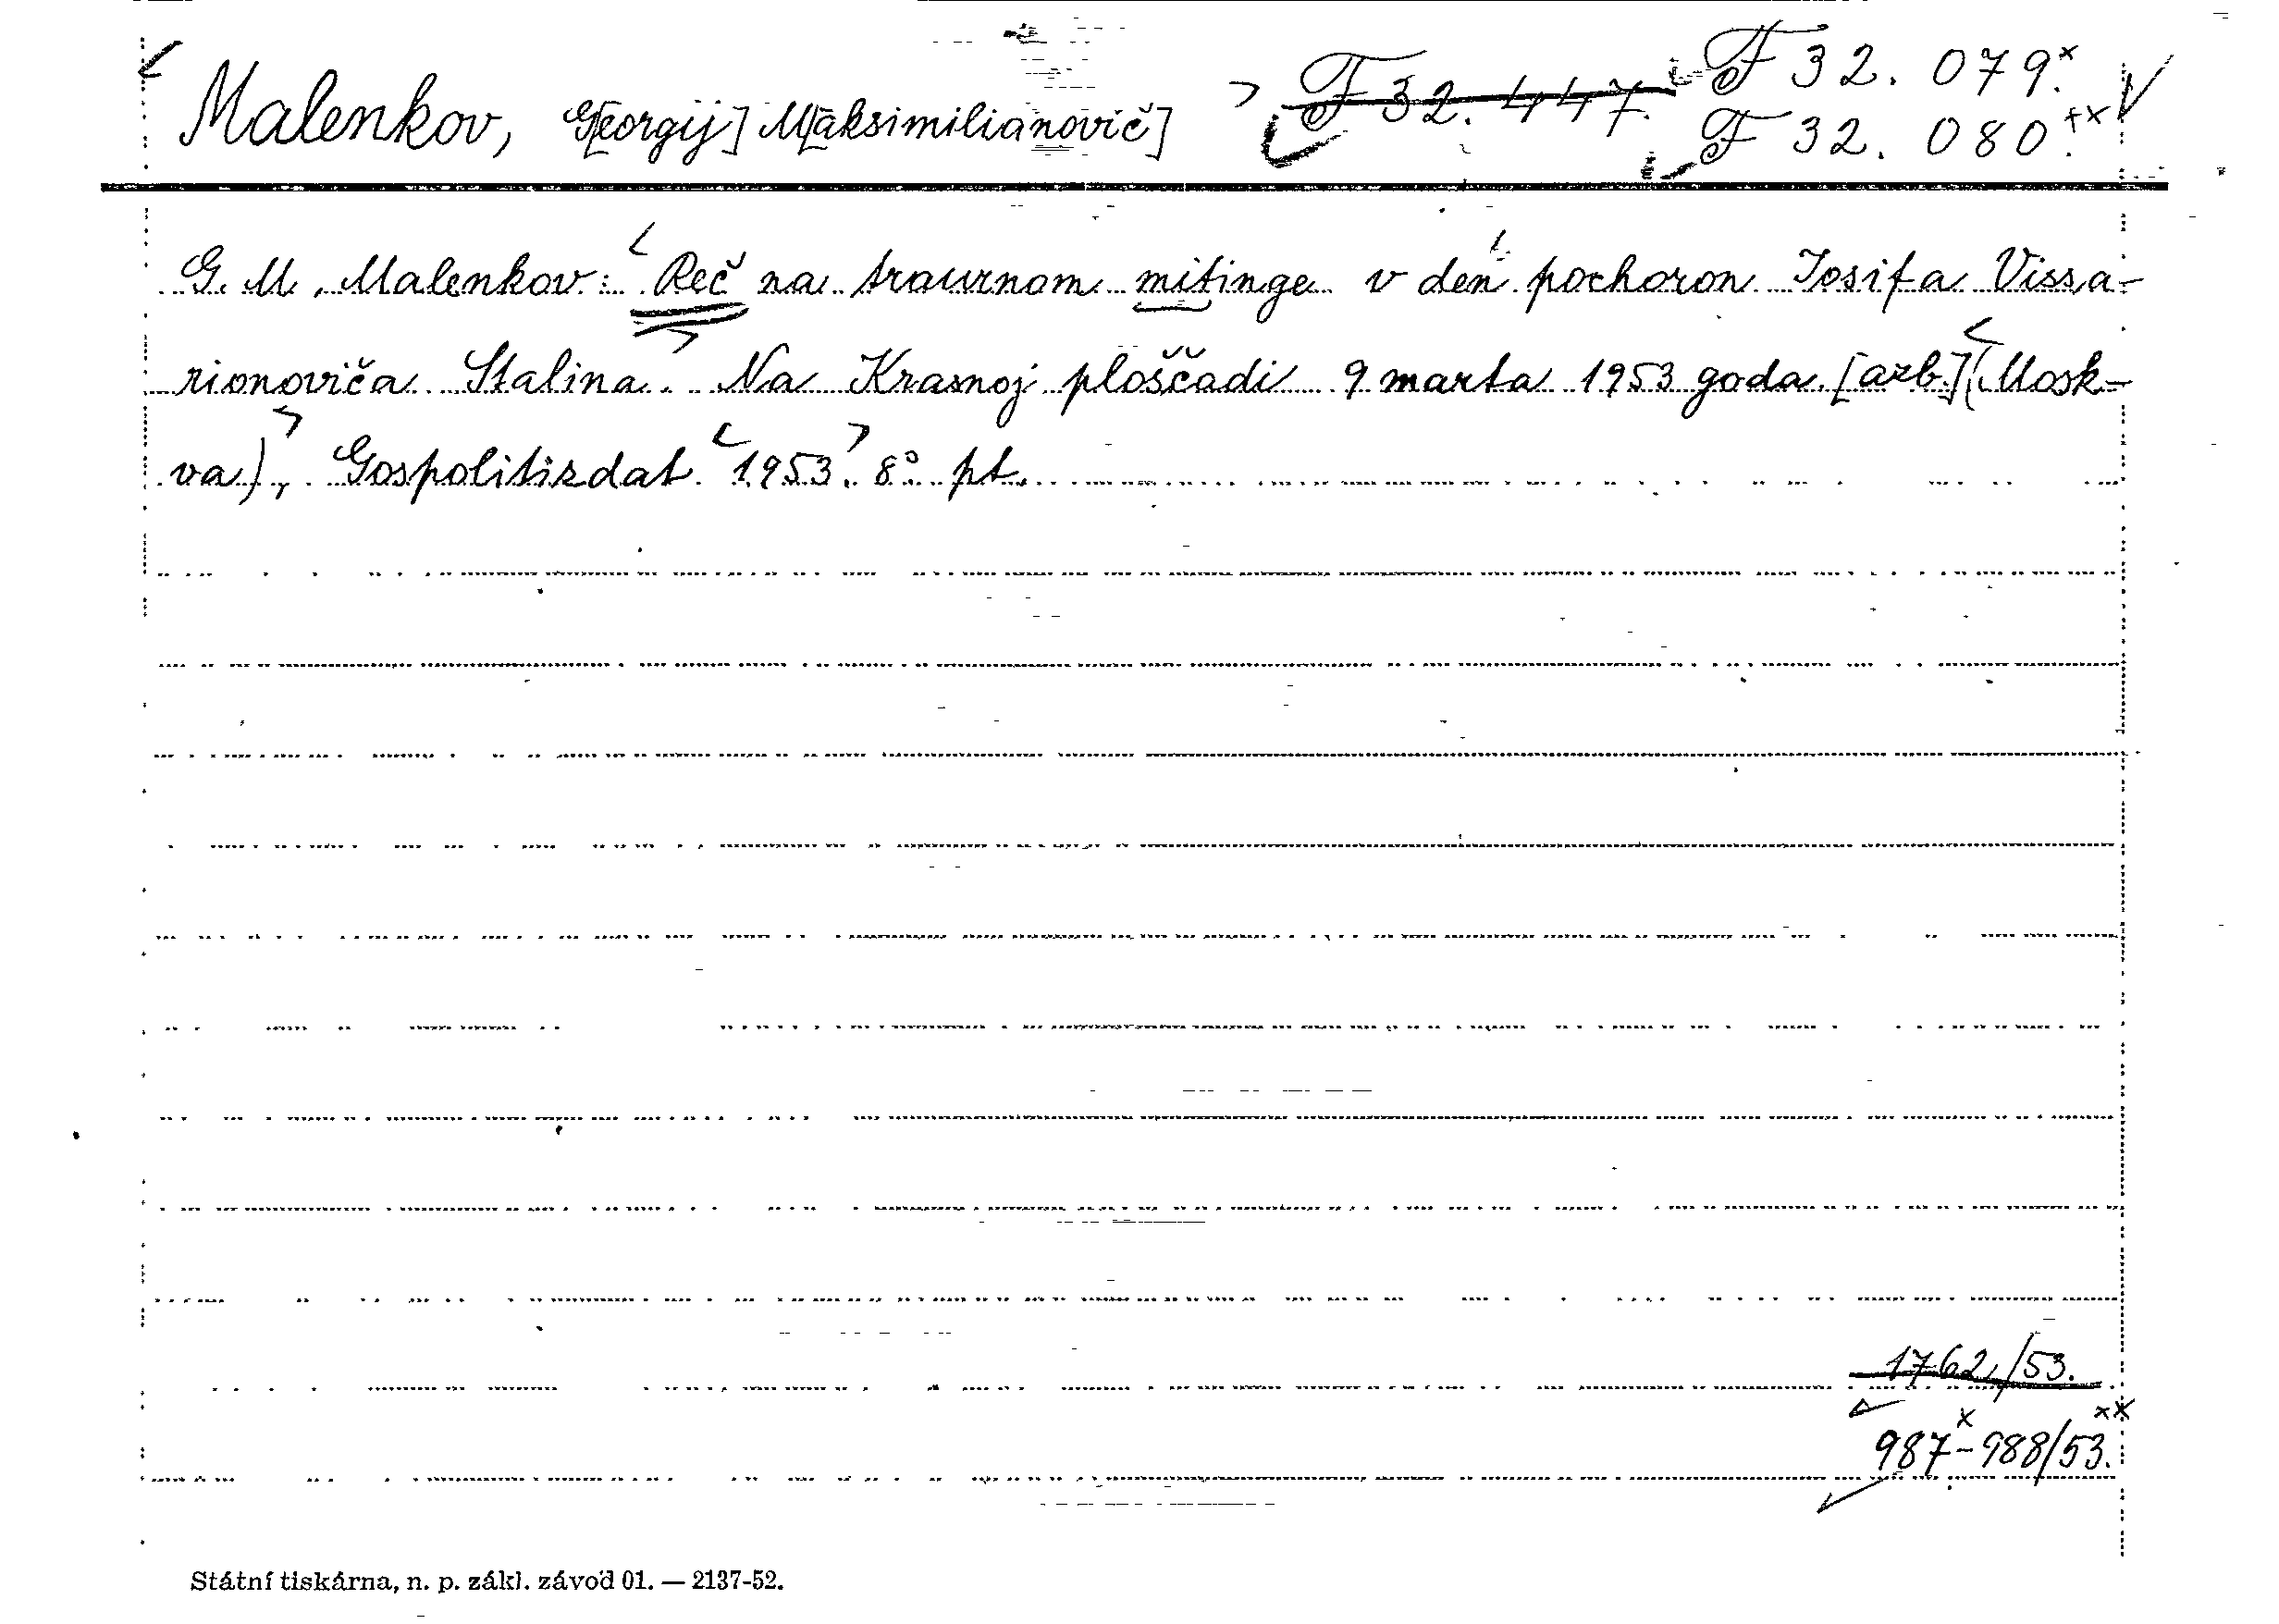 Malenkov, G[eorgij] M[aksimilianovič] F 32.447. F 32.079.x
F 32.080.xx
G. M. Malenkov: Reč na traurnom mitinge v deń pochoron Iosifa Vissa-
rionoviča Stalina. Na Krasnoj ploščadi 9 marta 1953 goda. [azb.] (Mosk-
va), Gospolitizdat 1953. 8°. pt.
1762/53.
987x-988/53.xx
Státní tiskárna, n. p. zákl. závod 01. — 2137-52.